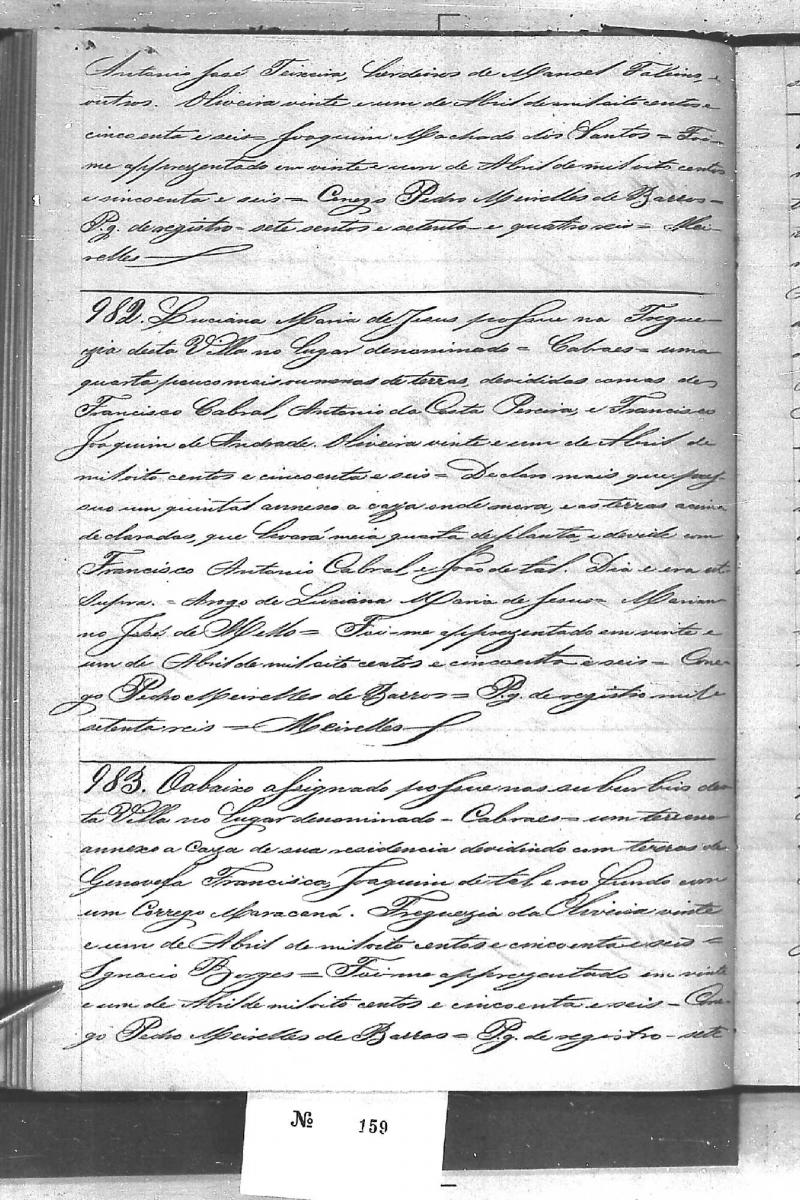 Antonio José Teixeira, herdeiros de Manoel Fabino, e
outros. Oliveira vinte e um de Abril de mil oito centos e
cincoenta e seis = Joaquim Machado dos Santos = Foi-
me apprezentado em vinte e um de Abril de mil oito centos
e sincoenta e seis = Conego Pedro Meirelles de Barros =
Pg. de registro - sete sentos e setenta e quatro reis = Mei-
relles
982. Luciana Maria de Jesus possue na Fregue-
zia desta Villa no lugar denominado = Cabraes = uma
quarta pouco mais ou menos de terras, devididas com as de
Francisco Cabral, Antonio da Costa Pereira, e Francisco
Joaquim de Andrade. Oliveira vinte e um de Abril de
mil oito centos e cincoenta e seis = Declaro mais que pos-
suo um quintal annexo a caza onde mora, e as terras acima
declaradas, que levará meia quarta de planta, e devide com
Francisco Antonio Cabral, e João de tal. Dia e era ut
Supra. = Arogo de Luciana Maria de Jesus = Marian-
no José de Mello = Foi-me apprezentado em vinte e
um de Abril de mil oito centos e cincoenta e seis = Cone-
go Pedro Meirelles de Barros = Pg. de registro mil e
setenta reis = Meirelles
983. O abaixo assignado possue nos suburbios des-
ta Villa no lugar denominado = Cabraes = um terreno
annexo a caza de sua residencia devidindo com terras de
Genovefa Francisca, Joaquim de tal e no fundo com
um Corrego Maracaná. Freguezia da Oliveira vinte
e um de Abril de mil oito centos e cincoenta e seis =
Ignacio Borges = Foi-me apprezentado em vinte
e um de Abril de mil oito centos e cincoenta e seis = Cone-
go Pedro Meirelles de Barros = Pg. de registro - sete
Nº 159